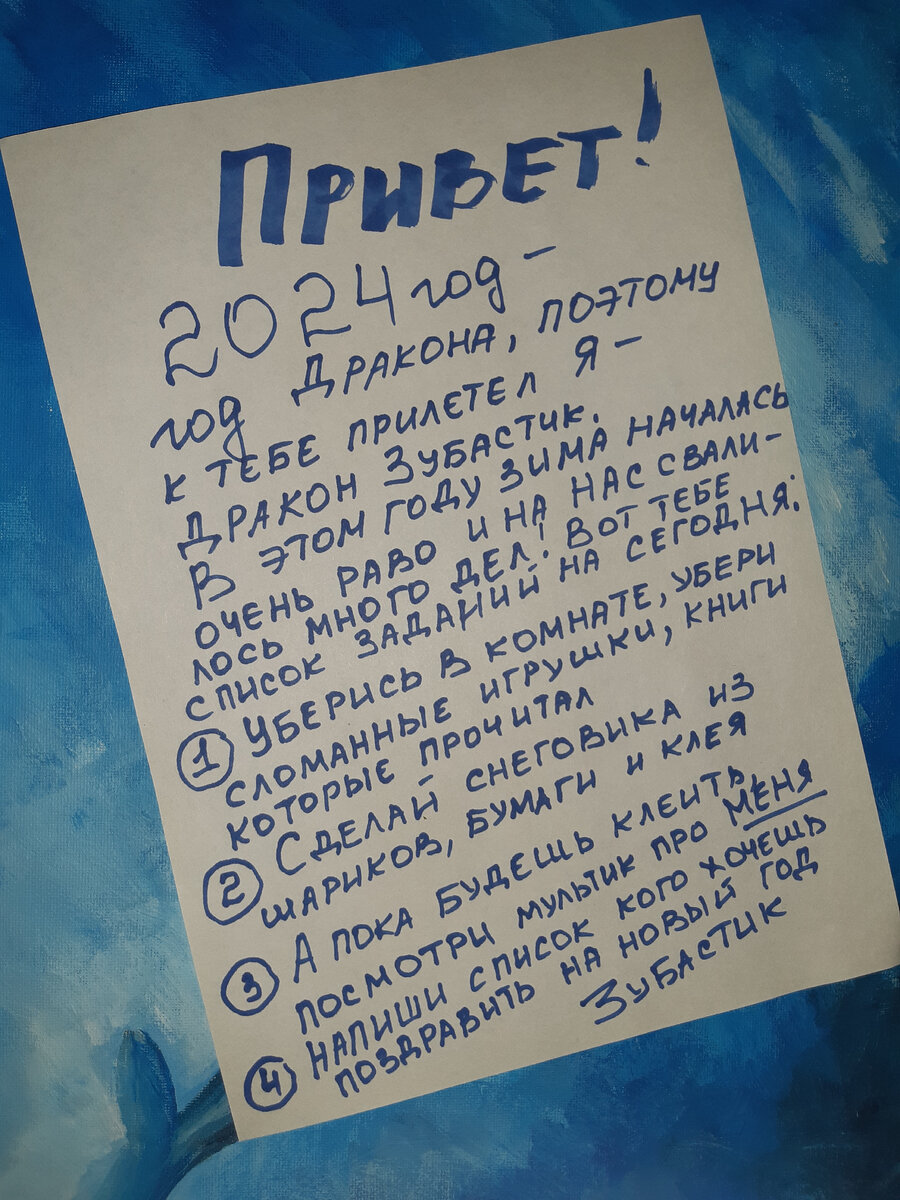 ПРИВЕТ!
2024 год –
год ДРАКОНА, ПОЭТОМУ
К ТЕБЕ ПРИЛЕТЕЛ Я –
ДРАКОН ЗУБАСТИК.
В ЭТОМ ГОДУ ЗИМА НАЧАЛАСЬ
ОЧЕНЬ РАВО И НА НАС СВАЛИ-
ЛОСЬ МНОГО ДЕЛ! ВОТ ТЕБЕ
СПИСОК ЗАДАНИЙ НА СЕГОДНЯ:
1 УБЕРИСЬ В КОМНАТЕ, УБЕРИ
СЛОМАННЫЕ ИГРУШКИ, КНИГИ
КОТОРЫЕ ПРОЧИТАЛ
2 СДЕЛАЙ СНЕГОВИКА ИЗ
ШАРИКОВ, БУМАГИ И КЛЕЯ
3 А ПОКА БУДЕШЬ КЛЕИТЬ
ПОСМОТРИ МУЛЬТИК ПРО МЕНЯ
4 НАПИШИ СПИСОК КОГО ХОЧЕШЬ
ПОЗДРАВИТЬ НА НОВЫЙ ГОД
ЗУБАСТИК